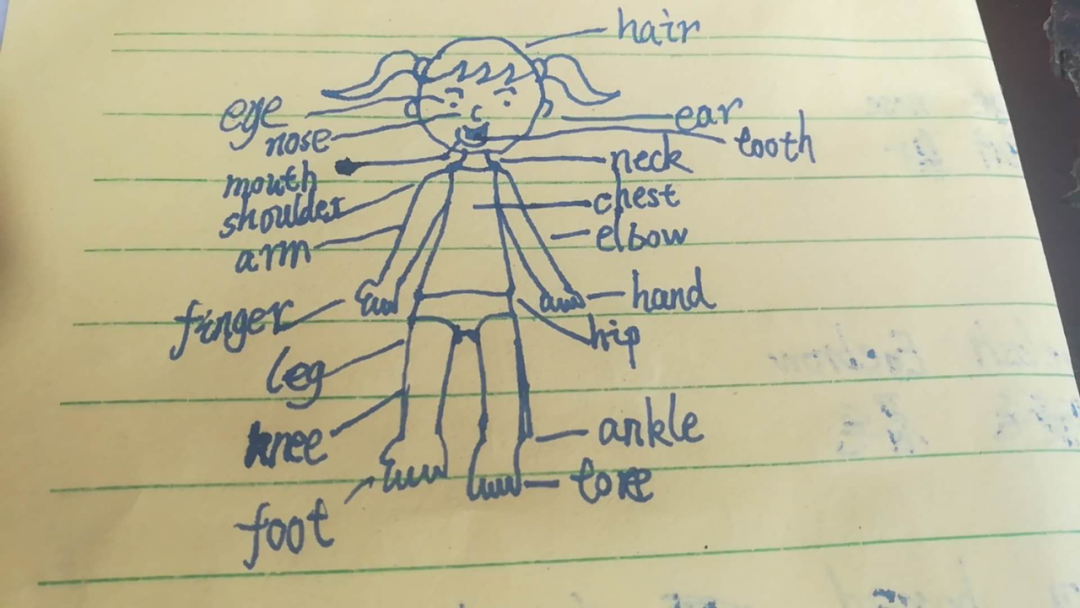 hair
eye
ear
nose
tooth
neck
mouth
chest
shoulder
elbow
arm
hand
finger
hip
leg
ankle
knee
toee
foot